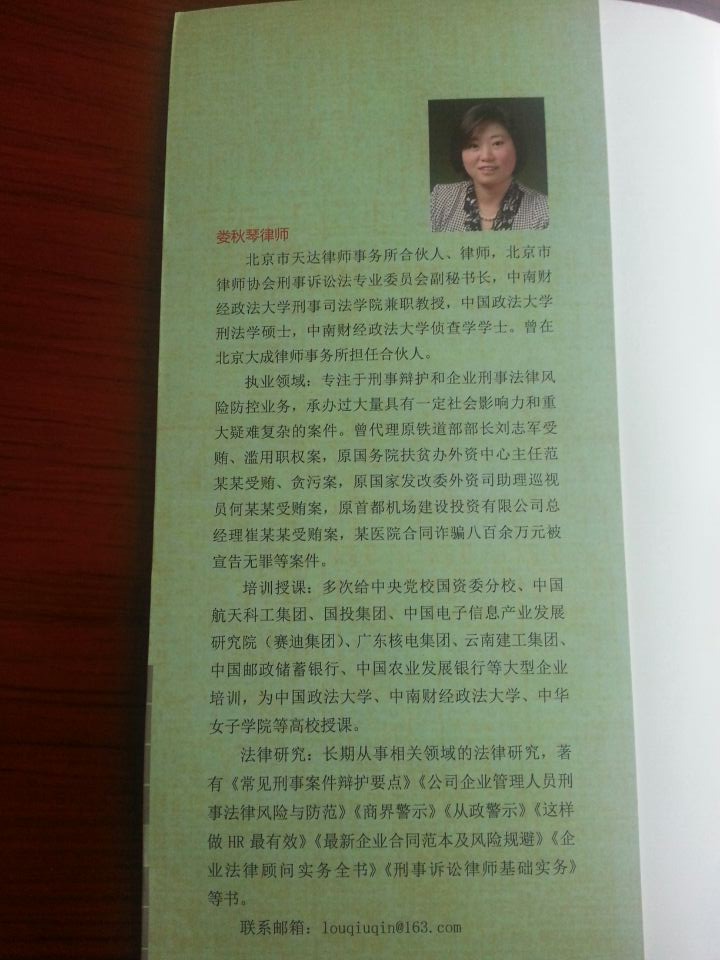 娄秋琴律师
北京市天达律师事务所合伙人、律师，北京市
律师协会刑事诉讼法专业委员会副秘书长，中南财
经政法大学刑事司法学院兼职教授，中国政法大学
刑法学硕士，中南财经政法大学侦查学学士。曾在
北京大成律师事务所担任合伙人。
执业领域：专注于刑事辩护和企业刑事法律风
险防控业务，承办过大量具有一定社会影响力和重
大疑难复杂的案件。曾代理原铁道部部长刘志军受
贿、滥用职权案，原国务院扶贫办外资中心主任范
某某受贿、贪污案，原国家发改委外资司助理巡视
员何某某受贿案，原首都机场建设投资有限公司总
经理崔某某受贿案，某医院合同诈骗八百余万元被
宣告无罪等案件。
培训授课：多次给中央党校国资委分校、中国
航天科工集团、国投集团、中国电子信息产业发展
研究院（赛迪集团）、广东核电集团、云南建工集团、
中国邮政储蓄银行、中国农业发展银行等大型企业
培训，为中国政法大学、中南财经政法大学、中华
女子学院等高校授课。
法律研究：长期从事相关领域的法律研究，著
有《常见刑事案件辩护要点》《公司企业管理人员刑
事法律风险与防范》《商界警示》《从政警示》《这样
做HR最有效》《最新企业合同范本及风险规避》《企
业法律顾问实务全书》《刑事诉讼律师基础实务》
等书。
联系邮箱：louqiuqin@163.com